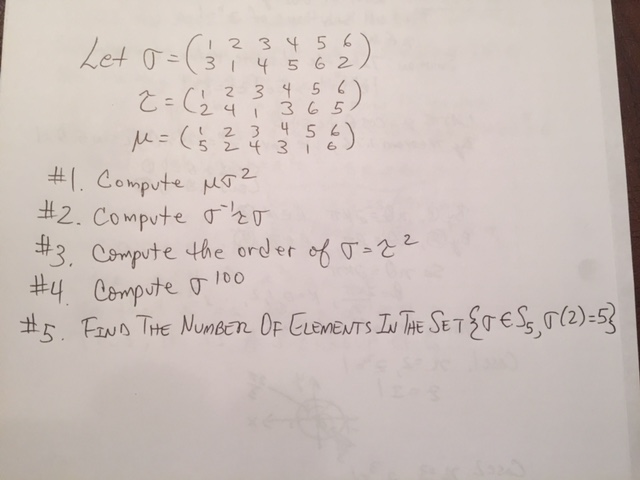 Let σ = ( 1 2 3 4 5 6
3 1 4 5 6 2 )
τ = ( 1 2 3 4 5 6
2 4 1 3 6 5 )
μ = ( 1 2 3 4 5 6
5 2 4 3 1 6 )
#1. Compute μσ²
#2. Compute σ⁻¹τσ
#3. Compute the order of σ = τ²
#4. Compute σ¹⁰⁰
#5. FIND THE NUMBER OF ELEMENTS IN THE SET {σ ∈ S₅, σ(2)=5}